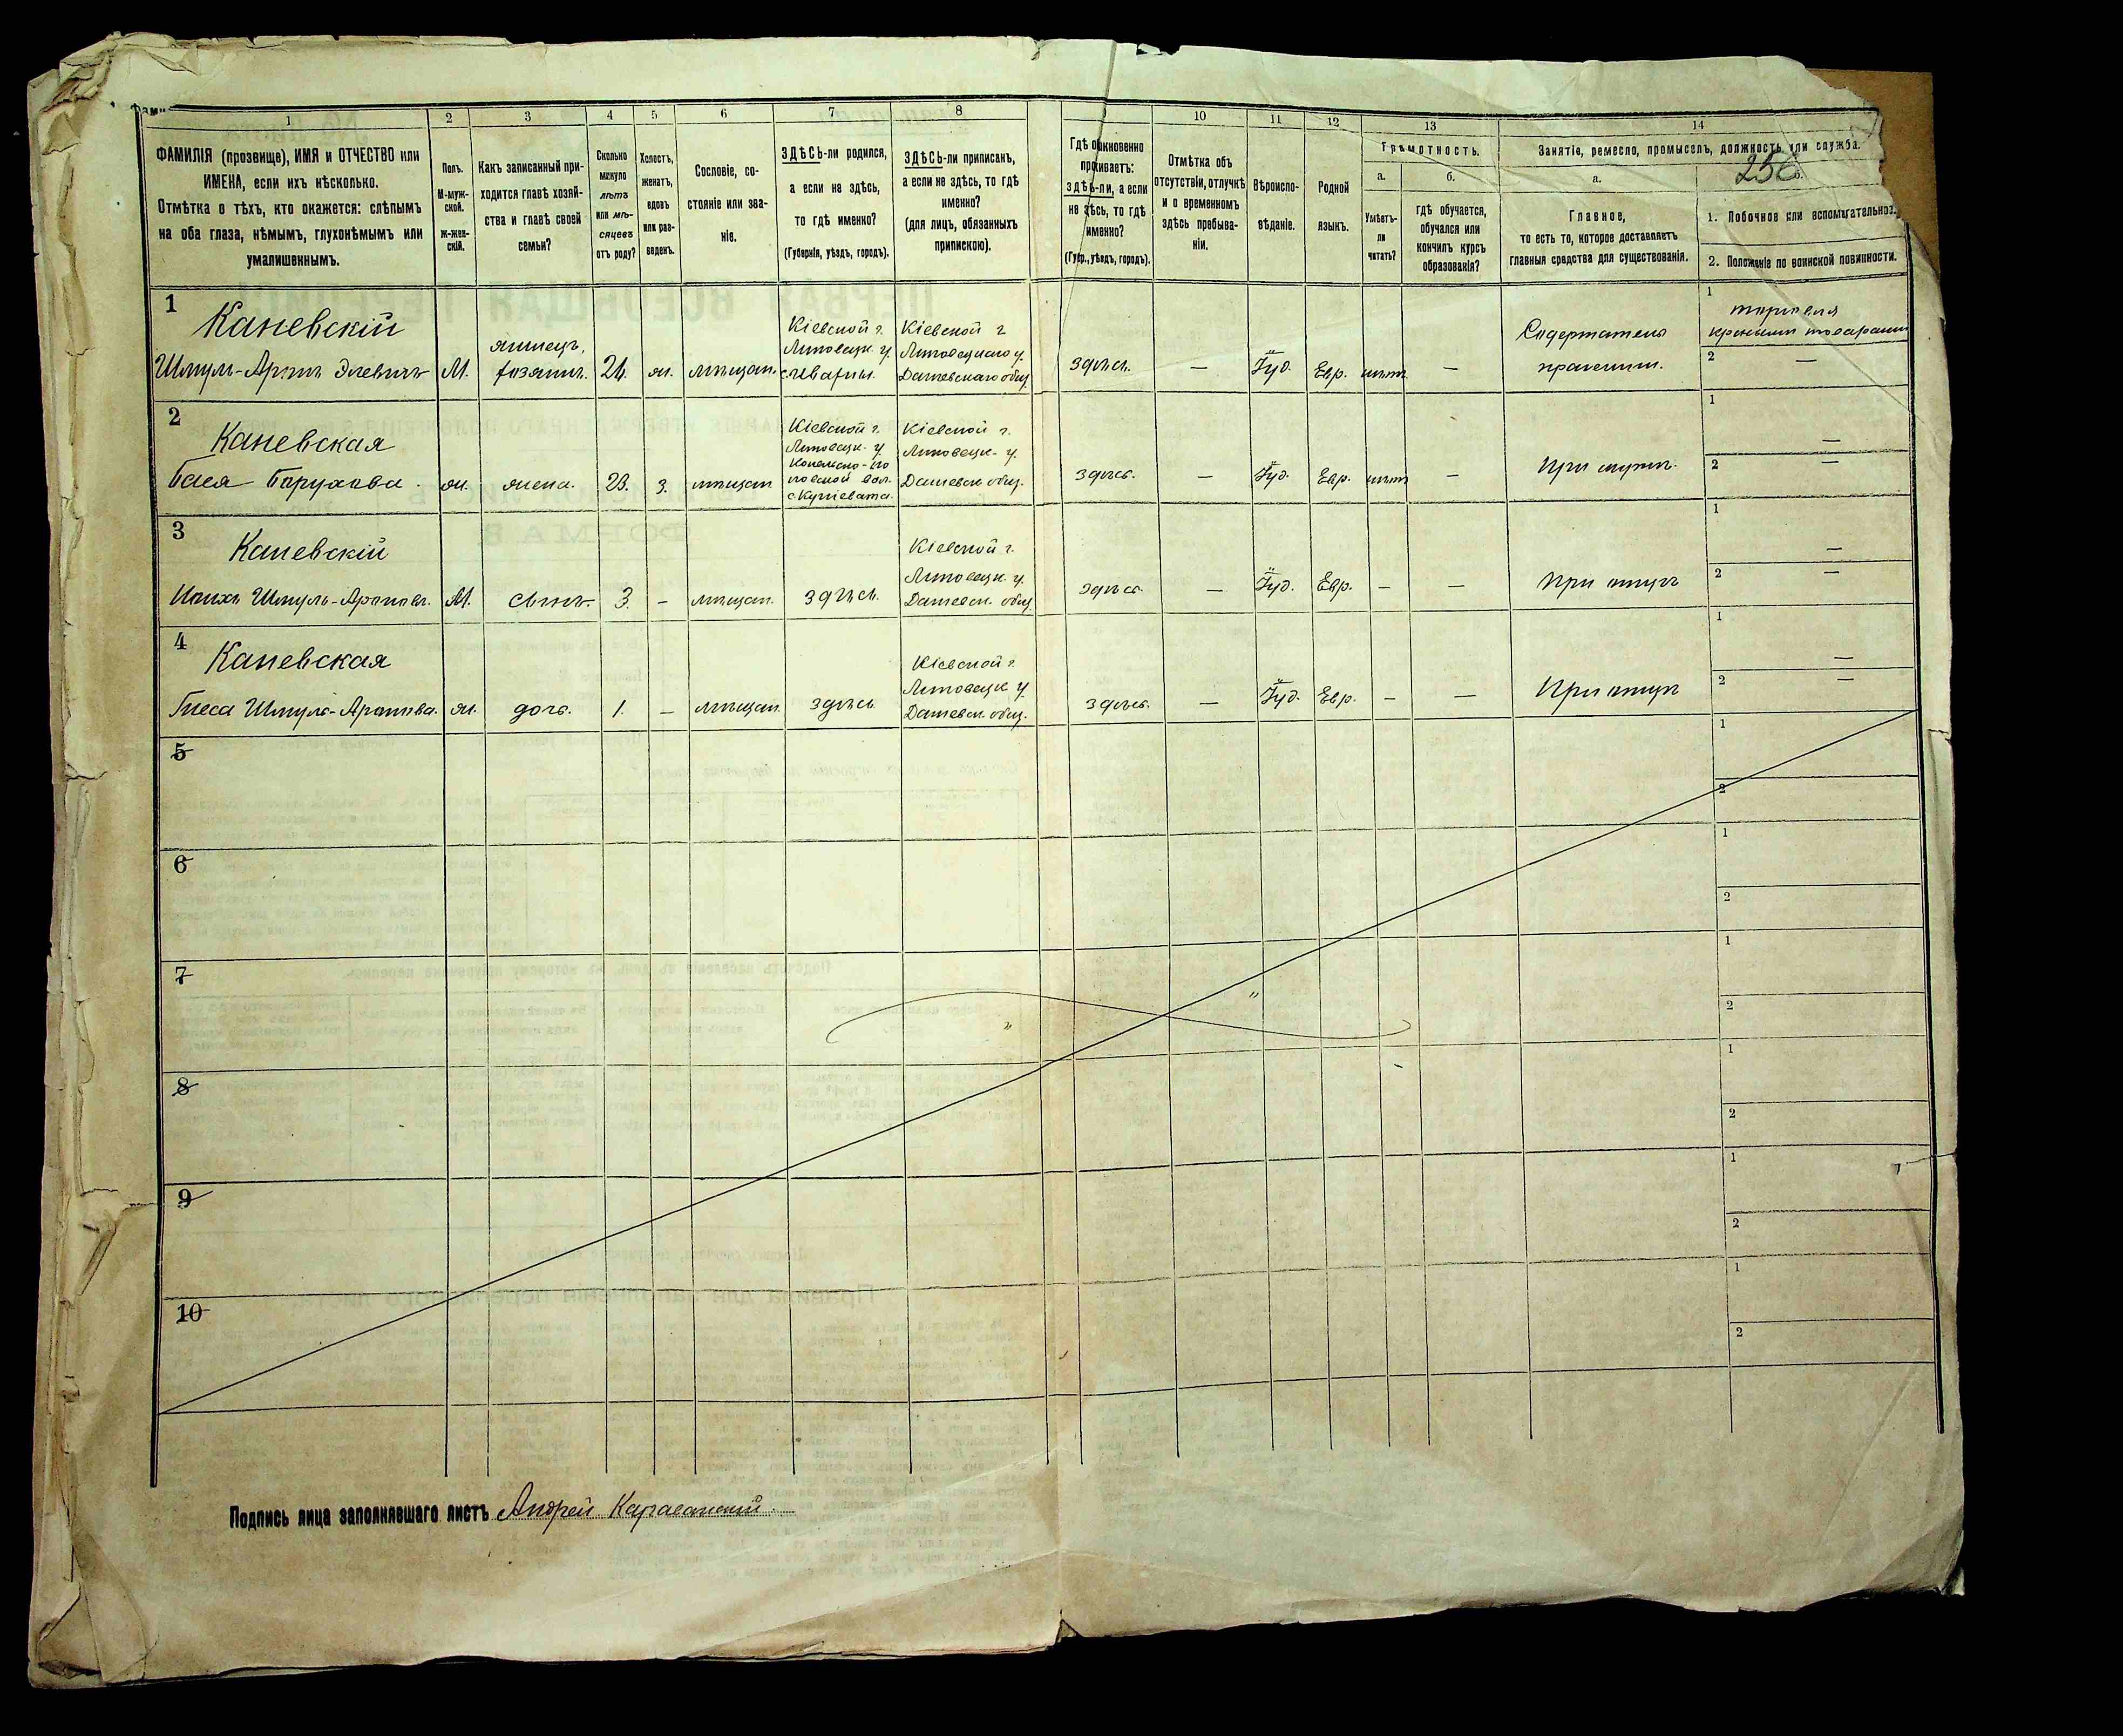 1
2
3
4
5
6
7
8
10
11
12
13
14
ФАМИЛІЯ (прозвище), ИМЯ и ОТЧЕСТВО или
ИМЕНА, если ихъ нѣсколько.
Отмѣтка о тѣхъ, кто окажется: слѣпымъ
на оба глаза, нѣмымъ, глухонѣмымъ или
умалишеннымъ.
Полъ.
М-муж-
ской.
Ж-жен-
скій.
Какъ записанный при-
ходится главѣ хозяй-
ства и главѣ своей
семьи?
Сколько
минуло
лѣтъ
или мѣ-
сяцевъ
отъ роду?
Холостъ,
женатъ,
вдовъ
или раз-
веденъ.
Сословіе, со-
стояніе или зва-
ніе.
ЗДѢСЬ-ли родился,
а если не здѣсь,
то гдѣ именно?
(Губернія, уѣздъ, городъ).
ЗДѢСЬ-ли приписанъ,
а если не здѣсь, то гдѣ
именно?
(для лицъ, обязанныхъ
припискою).
Гдѣ обыкновенно
проживаетъ:
ЗДѢСЬ-ли, а если
не здѣсь, то гдѣ
именно?
(Губ., уѣздъ, городъ).
Отмѣтка объ
отсутствіи, отлучкѣ
и о временномъ
здѣсь пребыва-
ніи.
Вѣроиспо-
вѣданіе.
Родной
языкъ.
Грамотность.
а.
Умѣетъ-
ли
читать?
б.
гдѣ обучается,
обучался или
кончилъ курсъ
образованія?
Занятіе, ремесло, промыселъ, должность или служба.
а.
Главное,
то есть то, которое доставляетъ
главныя средства для существованія.
б.
1. Побочное или вспомогательное.
2. Положеніе по воинской повинности.
1
Каневскій
Шмуль-Аронъ
М.
хозяинъ.
24.
ж.
мѣщан.
Кіевской г.
Липовецк. у.
Кіевской г
Липовецкаго у.
Дашевскаго общ.
здѣсь.
—
Іуд.
Евр.
нѣтъ
—
Содержатель
1
торговля
красными товарами
2 —
2
Каневская
Бася Борухова.
ж.
жена.
23.
З.
мѣщан.
Кіевской г.
Липовецк. у
Кіевской г.
Липовецк. у.
Дашевск. общ.
здѣсь.
—
Іуд.
Евр.
нѣтъ
—
При мужѣ.
1 —
2 —
3
Каневскій
Шмуль-Ароновъ.
М.
сынъ.
3.
—
мѣщан.
здѣсь.
Кіевской г.
Липовецк. у.
Дашевск. общ.
здѣсь.
—
Іуд.
Евр.
—
—
При отцѣ
1 —
2 —
4
Каневская
Шмуль-Аронова.
ж.
дочь.
1.
—
мѣщан.
здѣсь.
Кіевской г.
Липовецк. у.
Дашевск. общ.
здѣсь.
—
Іуд.
Евр.
—
—
При отцѣ
1 —
2 —
5
1
2
6
1
2
7
1
2
8
1
2
9
1
2
10
1
2
Подпись лица заполнявшаго листъ Андрей